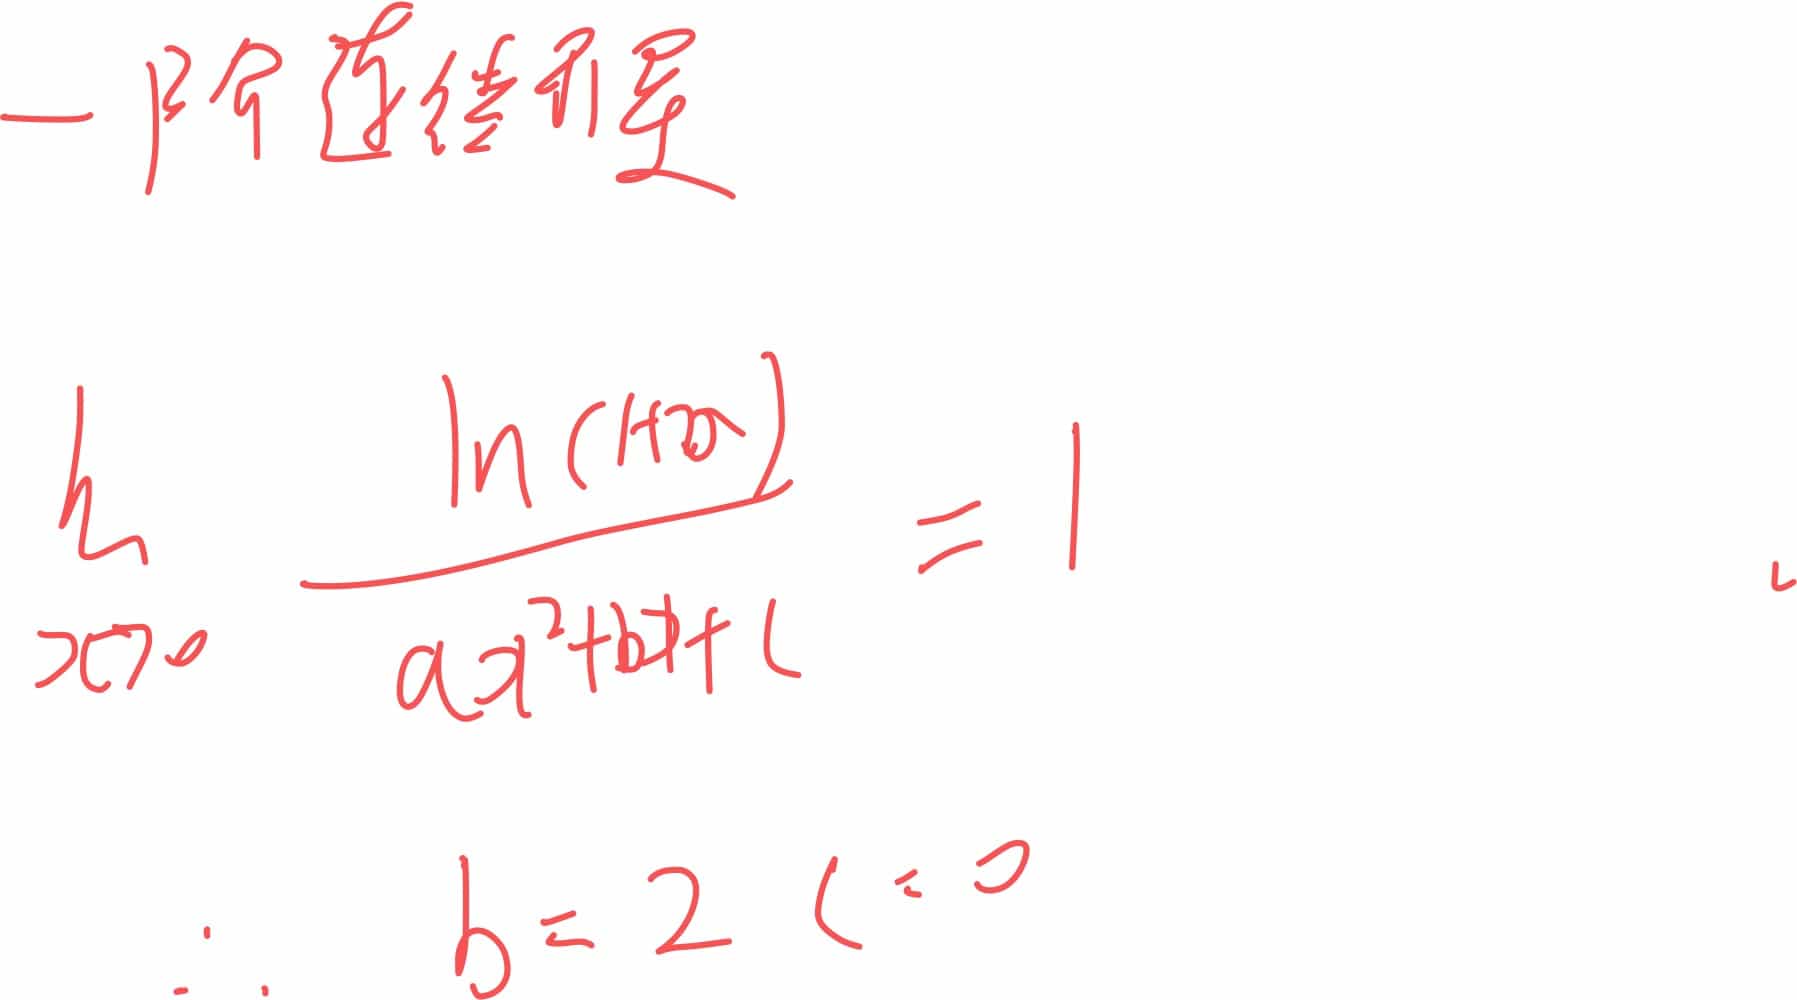 一阶连续可导
lim x→0 ln(1+2x) / ax²+bx+c = 1
∴ b=2 c=0